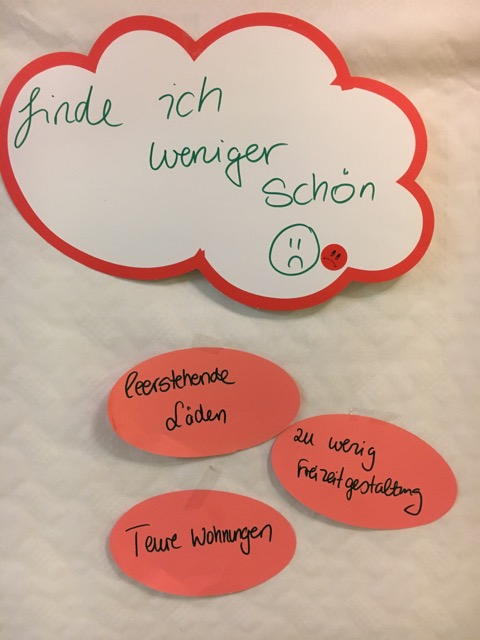 finde ich
weniger
schön
leerstehende
Läden
zu wenig
Freizeitgestaltung
Teure Wohnungen